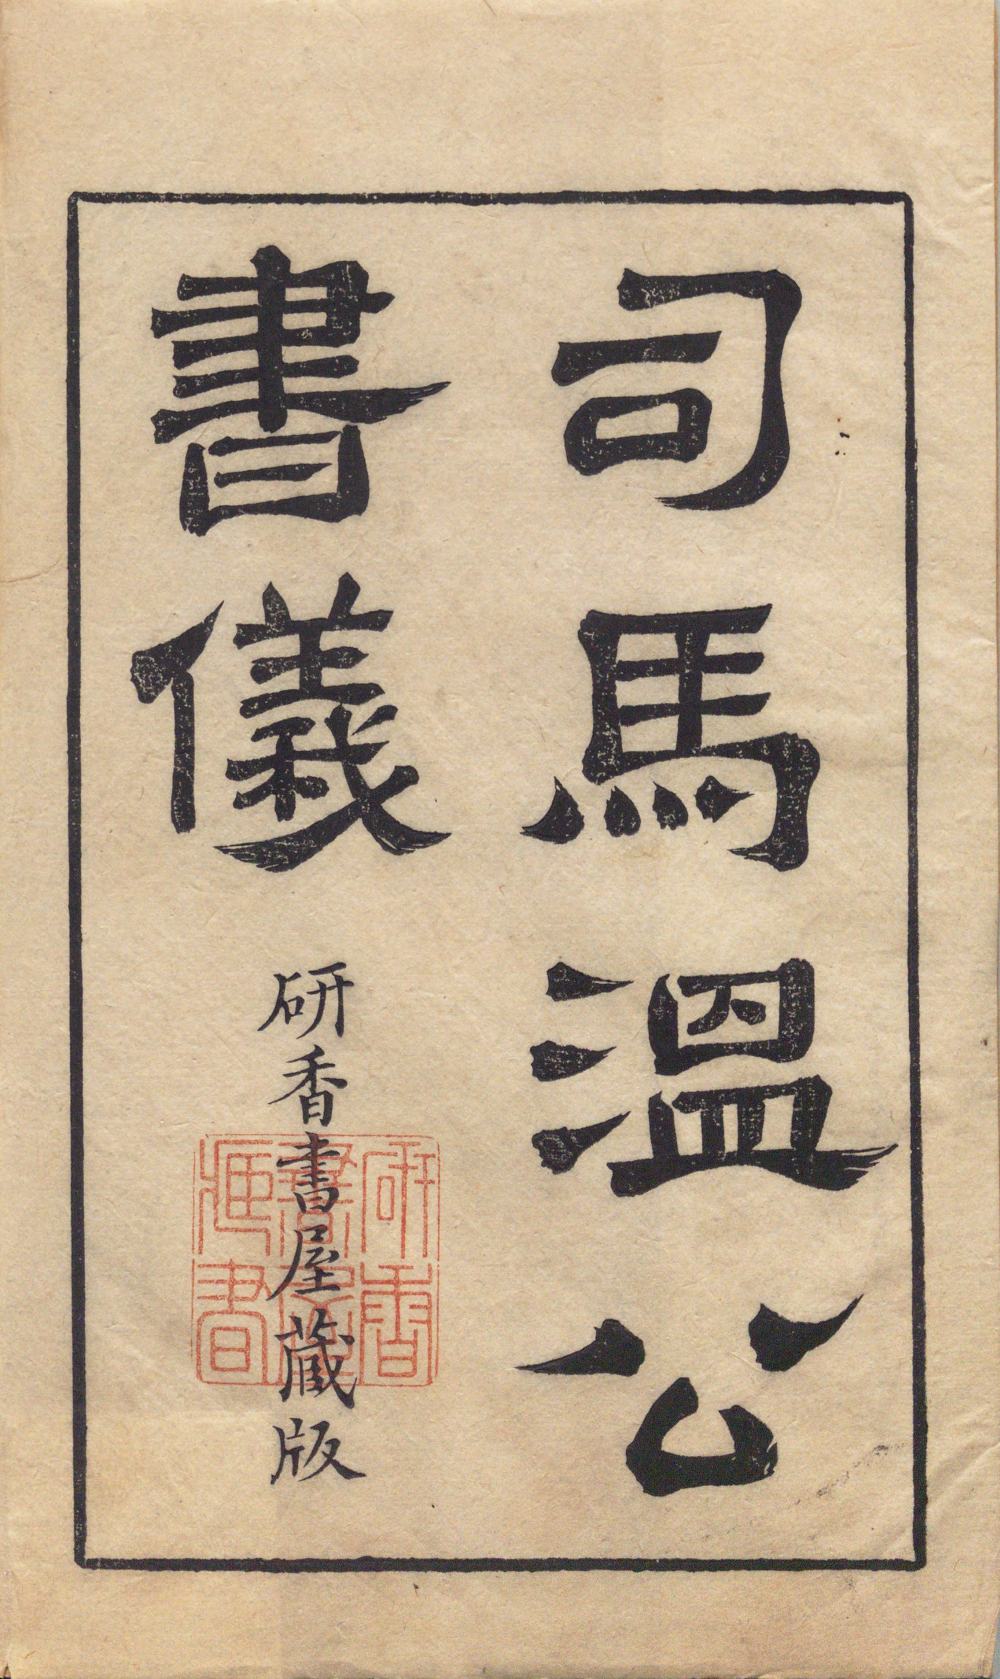 司馬溫公
書儀
研香書屋蔵版
研香
書屋
藏書